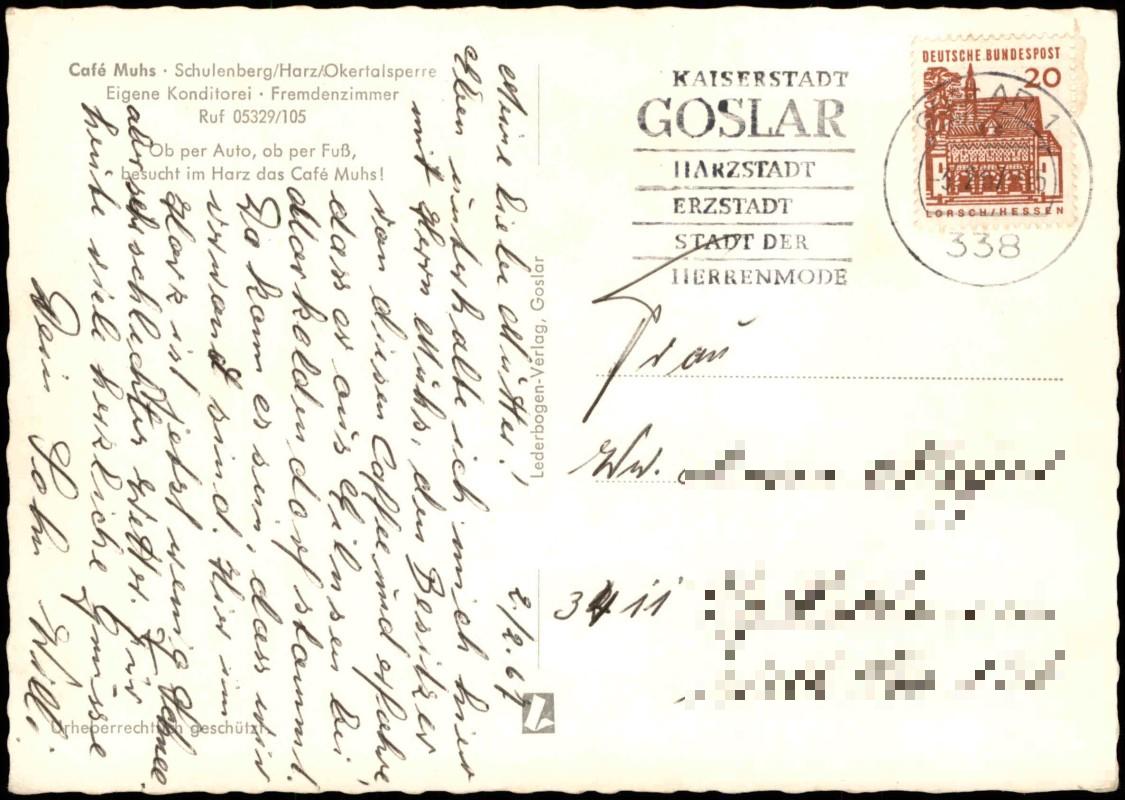 Café Muhs · Schulenberg/Harz/Okertalsperre
Eigene Konditorei · Fremdenzimmer
Ruf 05329/105
Ob per Auto, ob per Fuß,
besucht im Harz das Café Muhs!
2/2.67
Meine liebe Mutter!
Eben unterhalte ich mich hier
mit Herrn Muhs, dem Besitzer
von diesen Caffee und erfahre,
dass er aus Gilnsen bei
Markoldendorf stammt.
Da kann es sein, dass wir
verwandt sind. Hier im
Harz ist jetzt wenig Schnee,
aber schlechter Wetter. Für
heute viele herzliche Grüsse
Dein Sohn Willi.
Urheberrechtlich geschützt
Lederbogen-Verlag, Goslar
KAISERSTADT
GOSLAR
HARZSTADT
ERZSTADT
STADT DER
HERRENMODE
DEUTSCHE BUNDESPOST
20
LORSCH/HESSEN
338
Frau
Ww.
3411